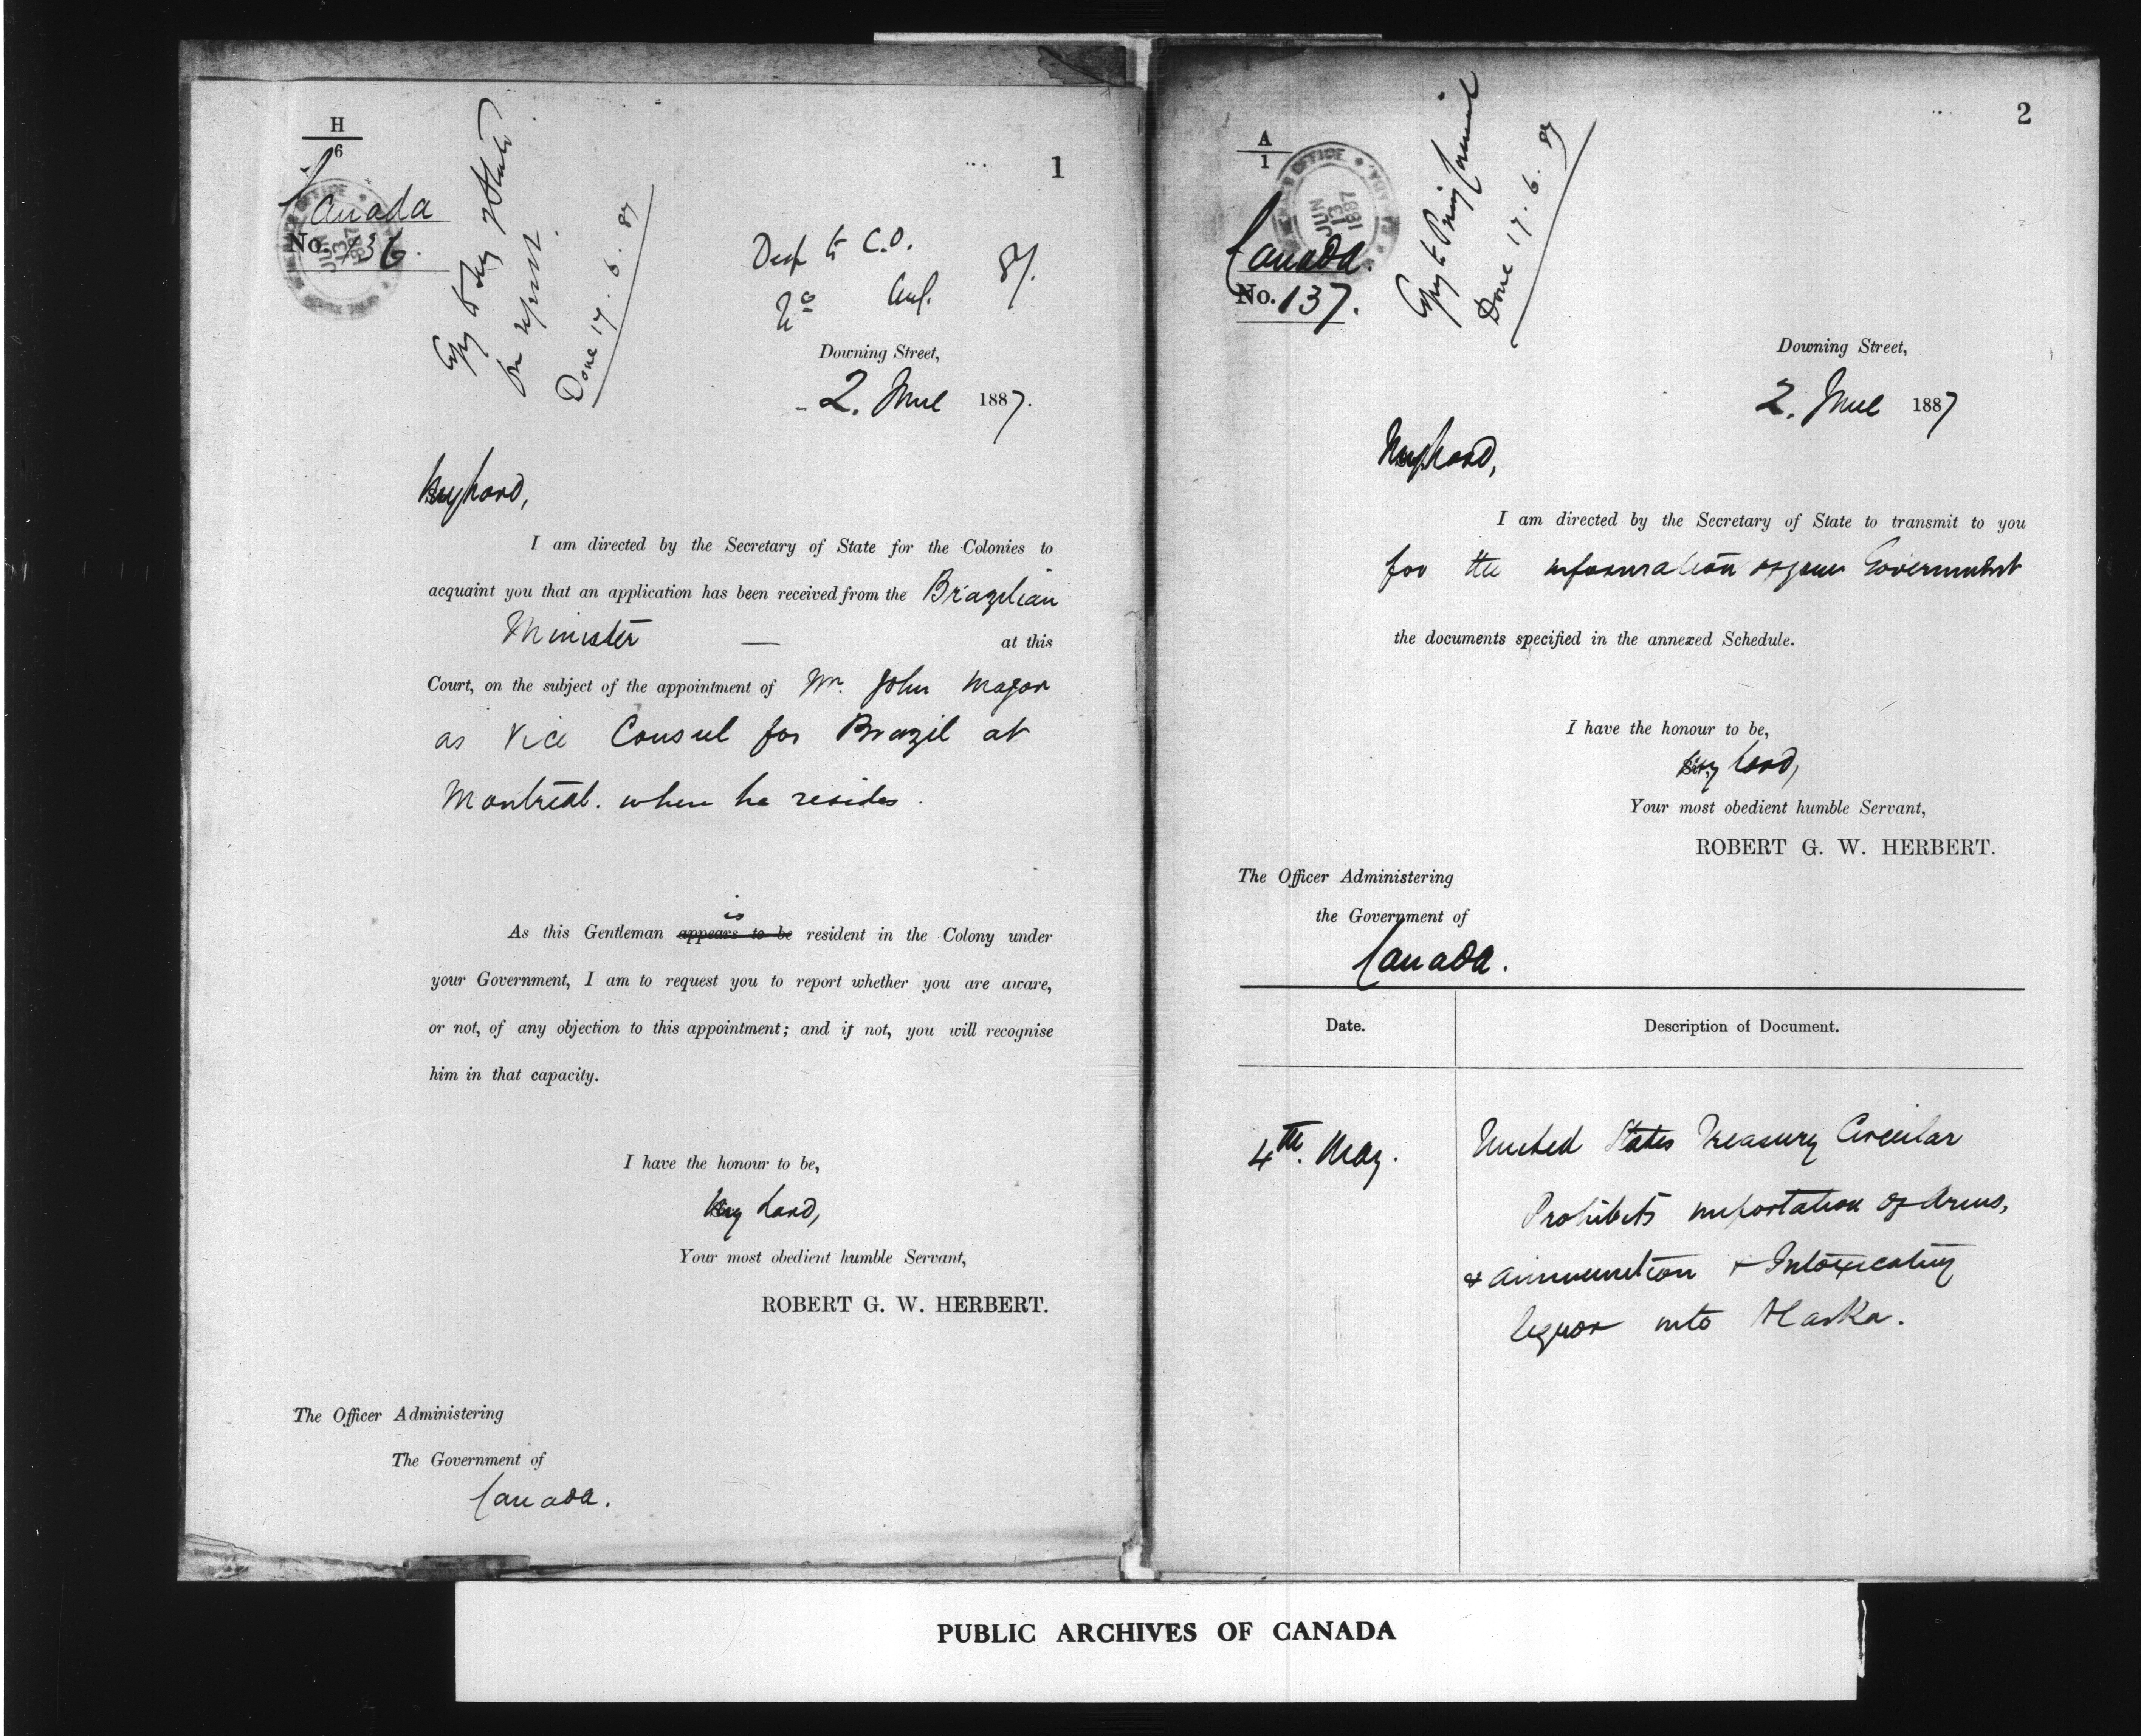 H
6
1
Canada
No. 136.
Copy to Secy of State
for report.
Done 17.6.87
Desp to C.O.
No
87.
Downing Street,
2. June 1887.
My Lord,
I am directed by the Secretary of State for the Colonies to
acquaint you that an application has been received from the Brazilian
Minister — at this
Court, on the subject of the appointment of Mr. John Magor
as Vice Consul for Brazil at
Montreal. where he resides.
is
As this Gentleman appears to be resident in the Colony under
your Government, I am to request you to report whether you are aware,
or not, of any objection to this appointment; and if not, you will recognise
him in that capacity.
I have the honour to be,
My Lord,
Your most obedient humble Servant,
ROBERT G. W. HERBERT.
The Officer Administering
The Government of
Canada.
2
A
1
JUN
13
1887
Canada.
No. 137.
Copy to Privy Council
Done 17.6.87
Downing Street,
2. June 1887
My Lord,
I am directed by the Secretary of State to transmit to you
for the information of your Government
the documents specified in the annexed Schedule.
I have the honour to be,
My Lord,
Your most obedient humble Servant,
ROBERT G. W. HERBERT.
The Officer Administering
the Government of
Canada.
Date.
Description of Document.
4th. May.
United States Treasury Circular
Prohibits importation of Arms,
& ammunition & Intoxicating
liquor into Alaska.
PUBLIC ARCHIVES OF CANADA